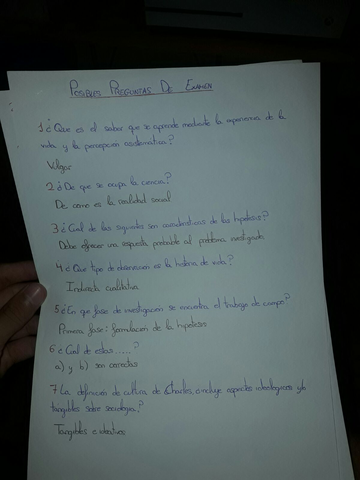 POSIBLES PREGUNTAS DE EXAMEN
1 ¿Que es el saber que se aprende mediante la experiencia de la
vida y la percepcion asistematica?
Vulgar
2 ¿De que se ocupa la ciencia?
De como es la realidad social
3 ¿Cual de las siguientes son caracteristicas de las hipotesis?
Debe ofrecer una respuesta probable al problema investigado
4 ¿Que tipo de observacion es la historia de vida?
Indirecta cualitativa
5 ¿En que fase de investigacion se encuentra el trabajo de campo?
Primera fase: formulacion de la hipotesis
6 ¿Cual de estas .....?
a) y b) son correctas
7 La definicion de cultura de incluye aspectos ideologicos y/o
tangibles sobre sociologia?
Tangibles e ideativos